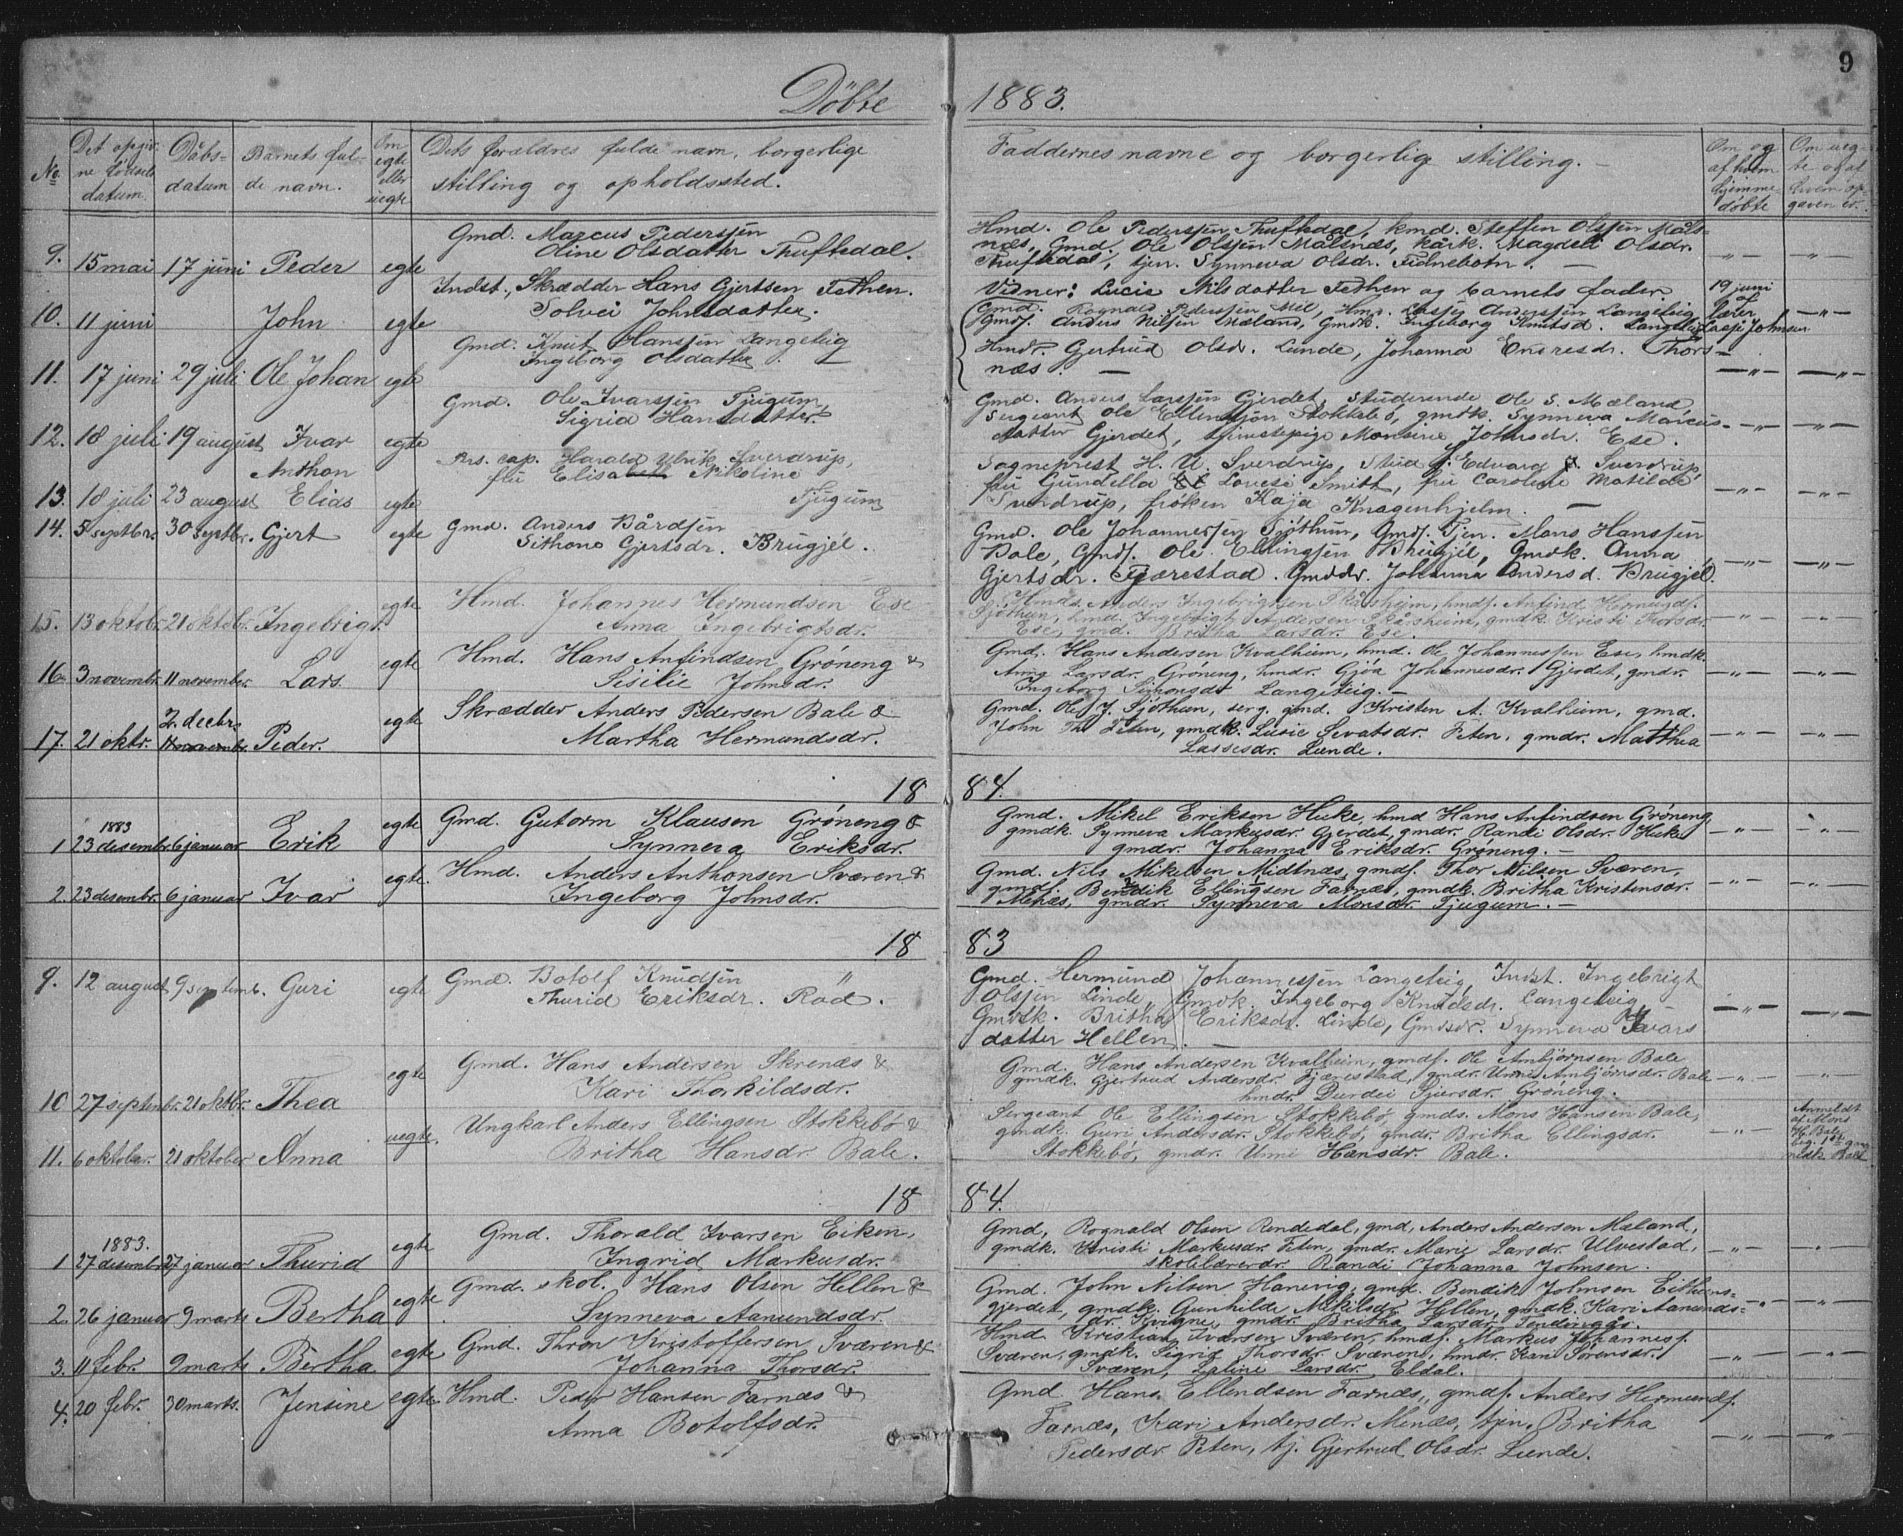 9
Döbte 1883.
No
Det opgiv-
ne födsels
datum.
Dåbs-
datum
Barnets ful-
de navn.
Om
egte
eller
uegte
Dets forældres fulde navn, borgerlige
stilling og opholdssted.
Faddernes navne og borgerlig stilling.
Om og
af hvem
hjemme
döbte
Om ueg-
te og af
hvem op-
gaven er.
9. 15 mai 17 juni Peder egte
Gmd. Marcus Pedersjen
Oline Olsdatter Thuftedal.
Hmd. Ole Pedersjen Thuftedal, kmd. Steffen Olsjen Måls-
næs, Gmd. Ole Olsjen Målsnæs, kårk. Magdeli Olsdr.
Thuftedal, tjen. Synneva Olsdr. Fidnebotn. —
10. 11 juni John egte
Indst., Skrædder Hans Gjertsen Fethen.
Solvei Johnsdatter.
Vidner: Lucie Nilsdatter Fethen og barnets fader.
19 juni
af
Lærer
Lasse Johnsen
11. 17 juni 29 juli Ole Johan egte
Gmd. Knut Hansjen Langeteig
Ingeborg Olsdatter
Gmd. Rognald Pedersjen Mel, Hmd. Lasse Andersjen Langeteig
Gmdf. Anders Nilsjen Mæland, Gmdk. Ingeborg Knutsd. Langeteig
Hmdr. Gjertrud Olsdr. Lunde, Johanna Endresdr. Thors-
næs. —
12. 18 juli 19 august Ivar
Anthon egte
Gmd. Ole Ivarsjen Tjugum,
Sigrid Hansdatter.
Gmd. Anders Larsjen Gjerdet, Studerende Ole S. Mæland,
Sergeant Ole Ellensjøn Stokkebö, gmdk. Synneva Marcus-
datter Gjerdet, tjenstepige Monsine Johnsdr. Ese.
13. 18 juli 23 august Elias egte
Rrs. cap. Harald Ulrik Sverdrup,
fru Elisa Nikoline
Tjugum
Sogneprest H. U. Sverdrup, Stud. j. Edvard Sverdrup,
fru Gundella Lovise Smitt, fru Caroline Matilde
Sverdrup, fröken Kaja Knagenhjelm. —
14. 5 septbr. 30 septbr. Gjert egte
Gmd. Anders Bårdsjen
Sithone Gjertsdr. Brugjél.
Gmd. Ole Johannessjen Sjöthun, Gmdf. Tjen. Mons Hanssjen
Bale, Gmdf. Ole Ellingsjen Brugjél, Gmdk. Anna
Gjertsdr. Fjærestad. Gmddr. Johanna Andersd. Brugjél.
15. 13 oktobr. 21 oktobr. Ingebrigt. egte
Hmd. Johannes Hermundsen Ese
Anna Ingebrigtsdr.
Hmds. Anders Ingebrigtsen Skårsheim, hmdf. Anfind Hermundf.
Sjöthun, hmd. Ingebrigt Andersen Skårsheim, gmdk. Kristi Thorsdr
Ese, gmd. Britha Larsdr. Ese.
16. 3 novembr. 11 november. Lars. egte
Hmd. Hans Anfindsen Gröneng &
Sisilie Johnsd.
Gmd. Hans Andersen Kvalheim, hmd. Ole Johannesjen Ese, hmdk.
Anna Larsdr. Gröneng, hmdr. Gjöa Johannesdr. Gjerdet, gmdr.
Ingeborg Simonsdr Langeteig. —
17. 21 oktr. 2. decbr. Peder. egte
Skrædder Anders Pedersen Bale &
Martha Hermundsdr.
Gmd. Ole J. Sjöthun, serg. gmd. Kristen A. Kvalheim, gmd.
John Th. Feten, gmdk. Lusie Sevatsdr. Feten, gmdr. Matthea
Lassesdr. Lunde.
18 84.
1 1883 23 desembr. 6 januar Erik egte
Gmd. Gutorm Klausen Gröneng &
Synneva Eriksdr.
Gmd. Mikel Eriksen Huke, hmd Hans Anfindsen Gröneng
gmdk. Synneva Markusdr. Gjerdet, gmdr. Randi Olsdr. Huke
gmdr. Johanna Eriksdr. Gröneng. —
2. 23 desembr. 6 januar Ivar egte.
Hmd. Anders Anthonsen Sværen &
Ingeborg Johnsdr.
Gmd. Nils Mikelsen Midtnæs, gmdf. Thor Nilsen Sværen,
gmdf. Bendik Ellingsen Farnæs, gmdk. Britha Kristensdr.
Menæs, gmdr. Synneva Monsdr. Tjugum. —
18 83
9. 12 august 9 septemb. Guri egte
Gmd. Botolf Knudsjen "
Thurid Eriksdr. Röd.
Gmd. Hermund Johannesjen Langeteig, Indst. Ingebrigt
Olsjen Linde, Gmdk. Ingeborg Knudsdr. Langeteig,
Gmdk. Britha Eriksdr. Linde, Gmdsdr. Synneva Ivars
datter Hellen. —
10 27 septembr. 21 oktbr. Thea egte
Gmd. Hans Andersen Skrenæs &
Kari Thorkildsdr.
Gmd. Hans Andersen Kvalheim, gmdf. Ole Anbjörnsen Bale
gmdk. Gjertrud Andersdr. Fjærestad, gmdr. Unni Anbjörnsdr. Bale
hmdr. Durdei Sjursdr. Gröneng.
11. 6 oktober. 21 oktober Anna uegte.
Ungkarl Anders Ellingsen Stokkebö &
Britha Hansdr. Bale.
Sergeant Ole Ellingsen Stokkebö, gmds. Mons Hansen Bale,
gmdk. Guri Andersdr. Stokkebö, gmdr. Britha Ellingsdr.
Stokkebö, gmdr. Unni Hansdr. Bale.
Anmeldt
af Mons
H. Bale
18 84.
1 1883. 27 desembr. 27 januar Thurid egte
Gmd. Thorald Ivarsen Eiken,
Ingrid Markusdr.
Gmd, Rognald Olsen Rendedal, gmd, Anders Andersen Mæland,
gmdk. Kristi Markusdr. Feten, gmdr. Marie Larsdr. Ulvestad,
skolelærerdr. Randi Johanna Johnsen.
2. 26 januar 9 marts Bertha egte
Gmd. skol. Hans Olsen Hellen &
Synneva Aamundsdr.
Gmd. John Nilsen Hanevig, gmd. Bendik Johnsen Eithuns-
gjerdet, gmdk. Gunhilde Mikilsdr Hellen, gmdk. Kari Aamunds-
dr. Kvigne, gmdr. Britha Larsdr Tendingås.
3. 11 febr. 9 marts Bertha egte
Gmd. Thron Kristoffersen Sværen &
Johanna Thorsdr.
Hmd. Kristian Iversen Sværen, hmdf. Markus Johannesf.
Sværen, gmdk. Sigrid Thorsdr Sværen, hmdr. Kari Sörensdr.
Sværen, Eline Larsdr. Eldal.
4. 20 febr. 30 marts. Jensine egte
Hmd. Peder Hansen Farnæs &
Anna Botolfsdr.
Gmd Hans Ellendsen Farnæs, gmdf. Anders Hermundf.
Farnæs, Kari Andersdr. Menæs, tjen. Britha
Pedersdr Feten, tj. Gjertrud Olsdr. Lunde.